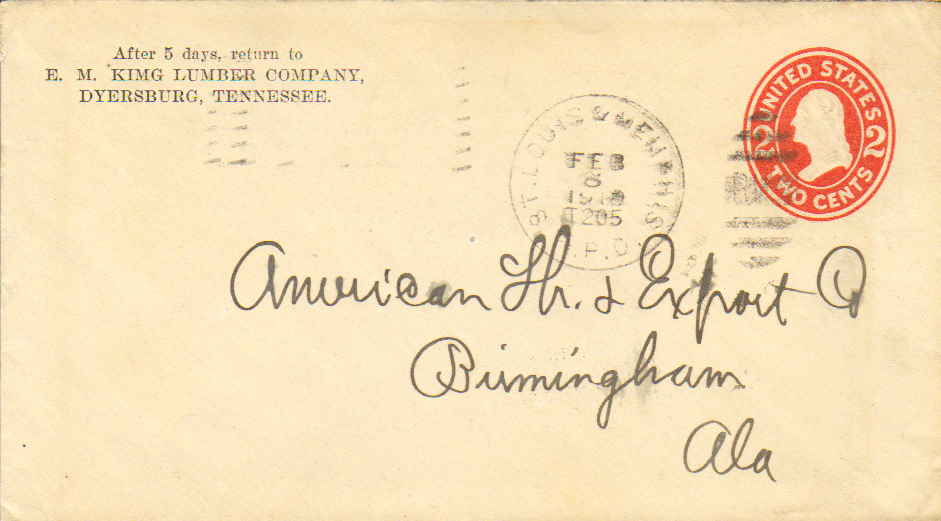 After 5 days, return to
E. M. KIMG LUMBER COMPANY,
DYERSBURG, TENNESSEE.
ST. LOUIS & MEMPHIS
FEB
T205
R.P.O.
UNITED STATES
2 2
TWO CENTS
American Hr. & Export Co
Birmingham
Ala